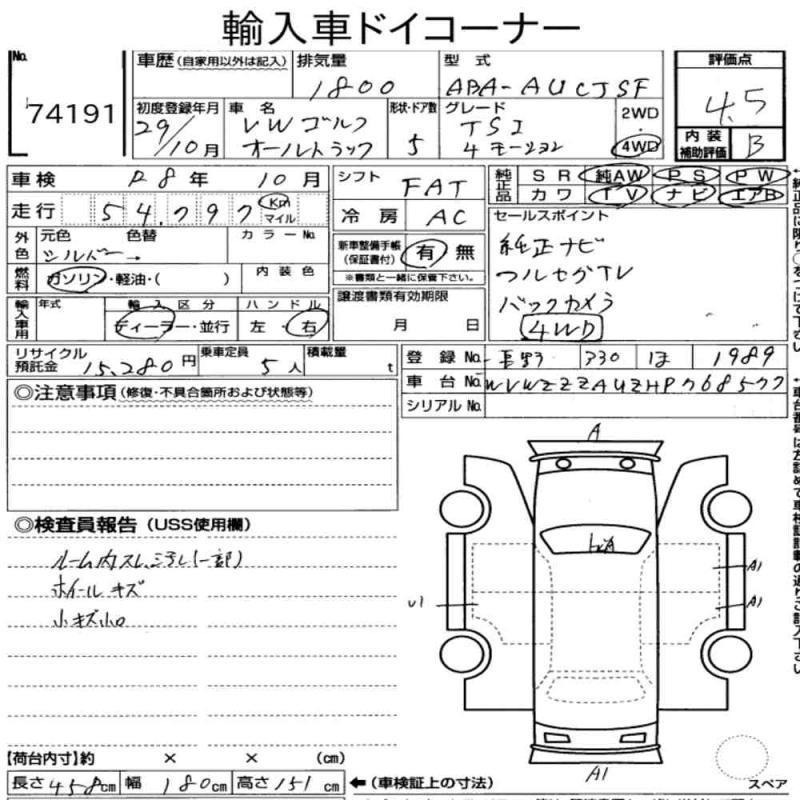 輸入車ドイコーナー
No. 74191
車歴(自家用以外は記入) 排気量 1800 型式 ABA-AUCJSF
評価点 4.5
初度登録年月 29/10月 車名 VWゴルフ オールトラック 形状・ドア数 5 グレード TSI 4モーション 2WD・4WD
内装補助評価 B
車検 R8年 10月 シフト FAT 純正品 SR 純AW PS PW
カワ TV ナビ エアB
走行 54,797 Km マイル 冷房 AC
セールスポイント
外色 元色 シルバー 色替 カラーNo. 新車整備手帳(保証書付) 有 無
※書類と一緒に保管下さい。
純正ナビ
フルセグTV
バックカメラ
4WD
燃料 ガソリン・軽油・( ) 内装色
譲渡書類有効期限 月 日
輸入車用 年式 輸入区分 ディーラー・並行 ハンドル 左・右
リサイクル預託金 15,280円 乗車定員 5人 積載量 t
登録No. 長野 330 ほ 1989
車台No. WVWZZZAUZHP768577
シリアルNo.
◎注意事項(修復・不具合箇所および状態等)
◎検査員報告(USS使用欄)
ルーム内スレ汚レ(一部)
ホイールキズ
小キズ小凹
A
A1
U1
A1
A1
【荷台内寸】約 × × (cm)
長さ458cm 幅180cm 高さ151cm ←(車検証上の寸法)
スペア